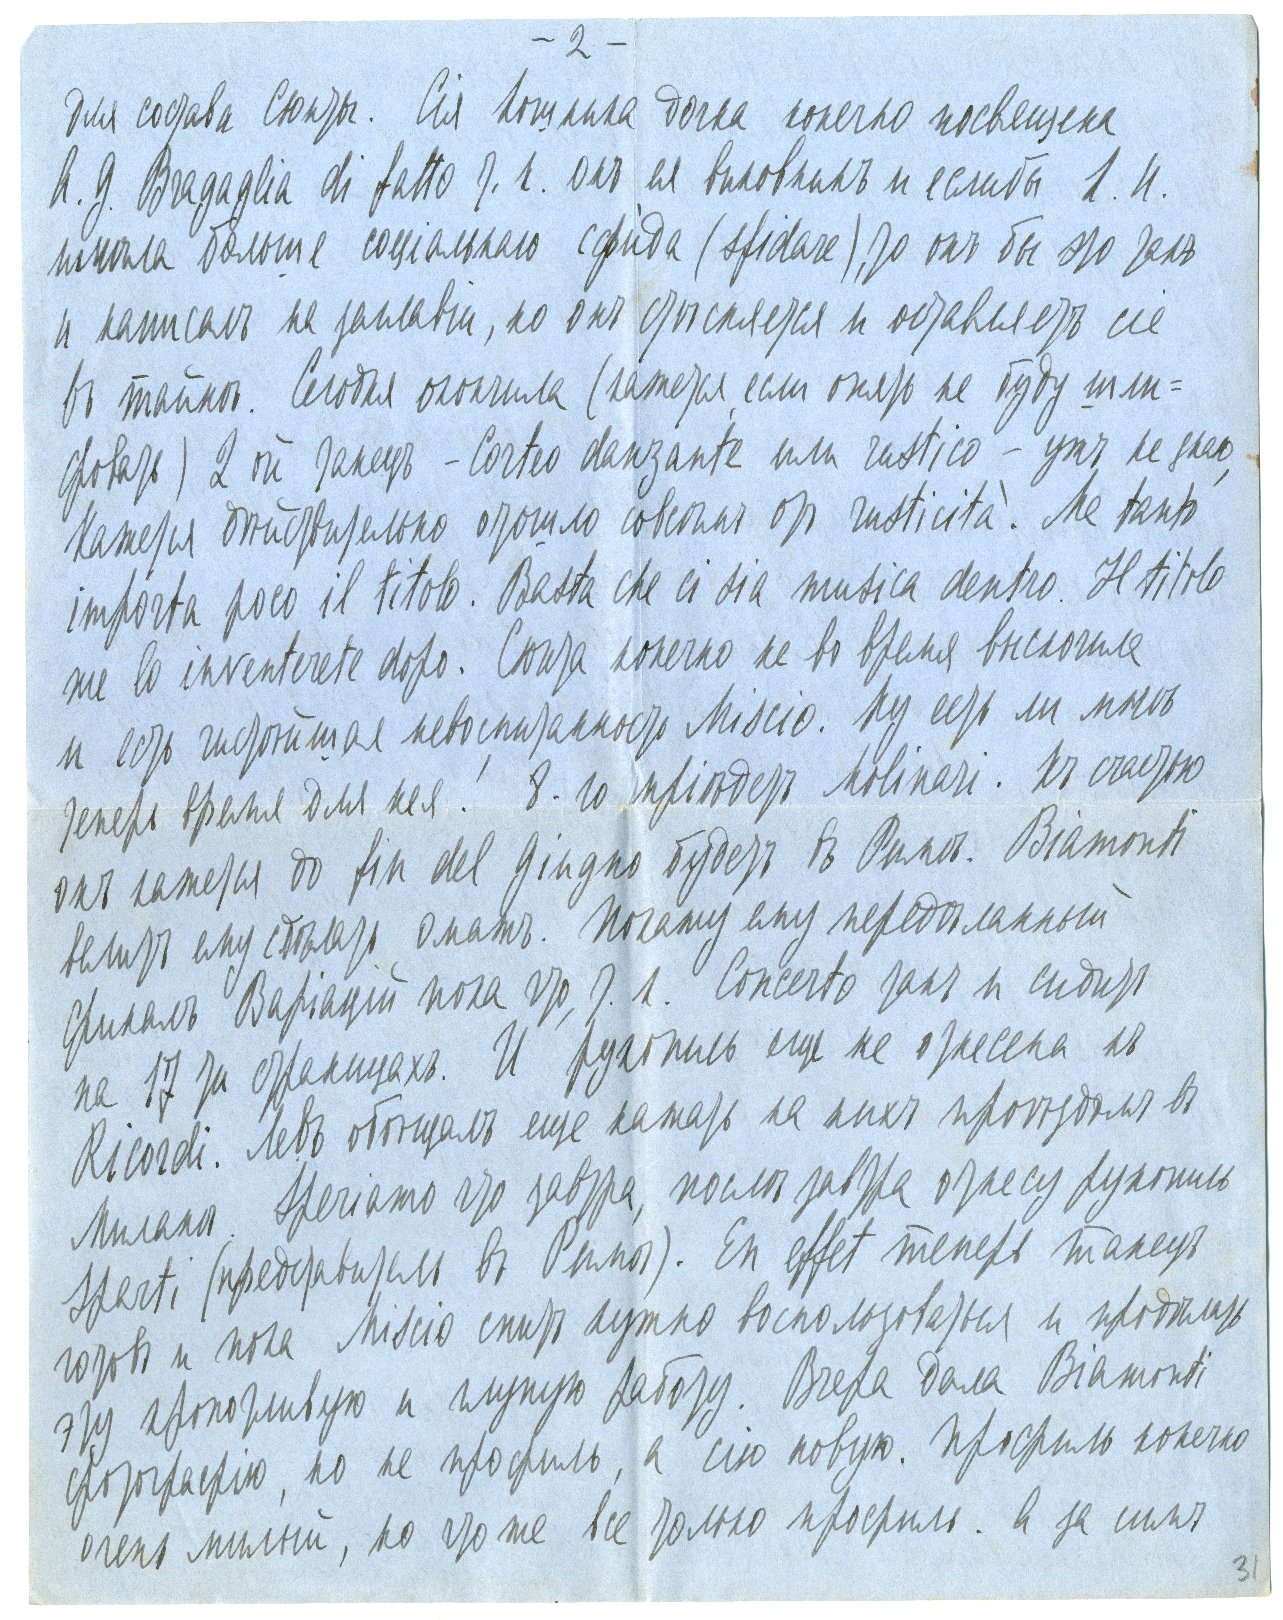 - 2 -
для состава Сюиты. Сія кошкина дочка конечно посвящена
A. G. Bragaglia di fatto т. к. онъ ея виновникъ и еслибы Л. И.
имѣла больше соціальнаго сфида (sfidare), то онъ бы это такъ
и написалъ на заглавіи, но онъ стѣсняется и оставляетъ сіе
въ тайнѣ. Сегодня окончила (кажется, если опять не буду шли=
фовать) 2ой танецъ - Corteo danzante или rustico - ужъ не знаю,
кажется дѣйствительно отошло совсѣмъ отъ rusticità. Ma tanto
importa poco il titolo. Basta che ci sia musica dentro. Il titolo
me lo inventerete dopo. Сюита конечно не во время выскочила
и есть чистѣйшая невоспитанность Miscio. Ну есть ли мнѣ
теперь время для нея! 8-го пріѣдетъ Molinari. Къ счастью
онъ кажется до fin del Giugno будетъ въ Римѣ. Biamonti
велитъ ему сдѣлать омажъ. Покажу ему передѣланный
финалъ Варіацій пока что, т. к. Concerto такъ и сидитъ
на 17 ти страницахъ. И рукопись еще не отнесена къ
Ricordi. Левъ обѣщалъ еще нажать на нихъ проѣздомъ въ
Миланѣ. Speriamo что завтра, послѣ завтра отнесу рукопись
Sparti (представитель въ Римѣ). En effet теперь танецъ
готовъ и пока Miscio спитъ нужно воспользоваться и продѣлать
эту кропотливую и глупую работу. Вчера дала Biamonti
фотографію, но не профиль, а сію новую. Профиль конечно
очень милый, но что же все только профиль. А за симъ
31